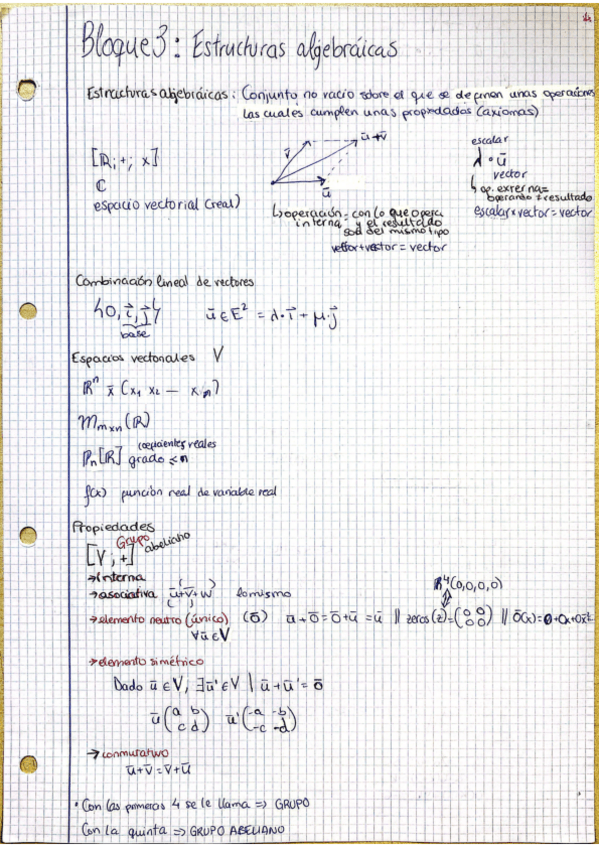 Bloque 3: Estructuras algebráicas
Estructuras algebráicas: Conjunto no vacío sobre el que se definen unas operaciones
las cuales cumplen unas propiedades (axiomas)
[ℝ; +; x]
ℂ
espacio vectorial (real)
v⃗
ū+v̄
ū
↳operación = con lo que opera
interna y el resultado
son del mismo tipo
vector+vector = vector
escalar
λ · ū
vector
↳ op. externa =
operando ≠ resultado
escalar x vector = vector
Combinación lineal de vectores
{0, i⃗, j⃗}
base
ū ∈ E² = λ·i⃗ + μ·j⃗
Espacios vectoriales V
ℝⁿ x̄ (x₁ x₂ — xₙ)
Mₘₓₙ(ℝ)
coeficientes reales
Pₙ[ℝ] grado ≤ n
f(x) función real de variable real
Propiedades
Grupo abeliano
[V; +]
→interna
→asociativa ū+v̄+w̄ lo mismo
→elemento neutro (único) (ō) ū+ō=ō+ū=ū || zeros(2)=(0 0
0 0) || ō(x)=0+0x+0x²
ℝ⁴(0,0,0,0)
∀ū∈V
→elemento simétrico
Dado ū∈V, ∃ū'∈V | ū+ū'=ō
ū(a b
c d) ū'(-a -b
-c -d)
→ conmutativo
ū+v̄=v̄+ū
· Con las primeras 4 se le llama => GRUPO
Con la quinta => GRUPO ABELIANO